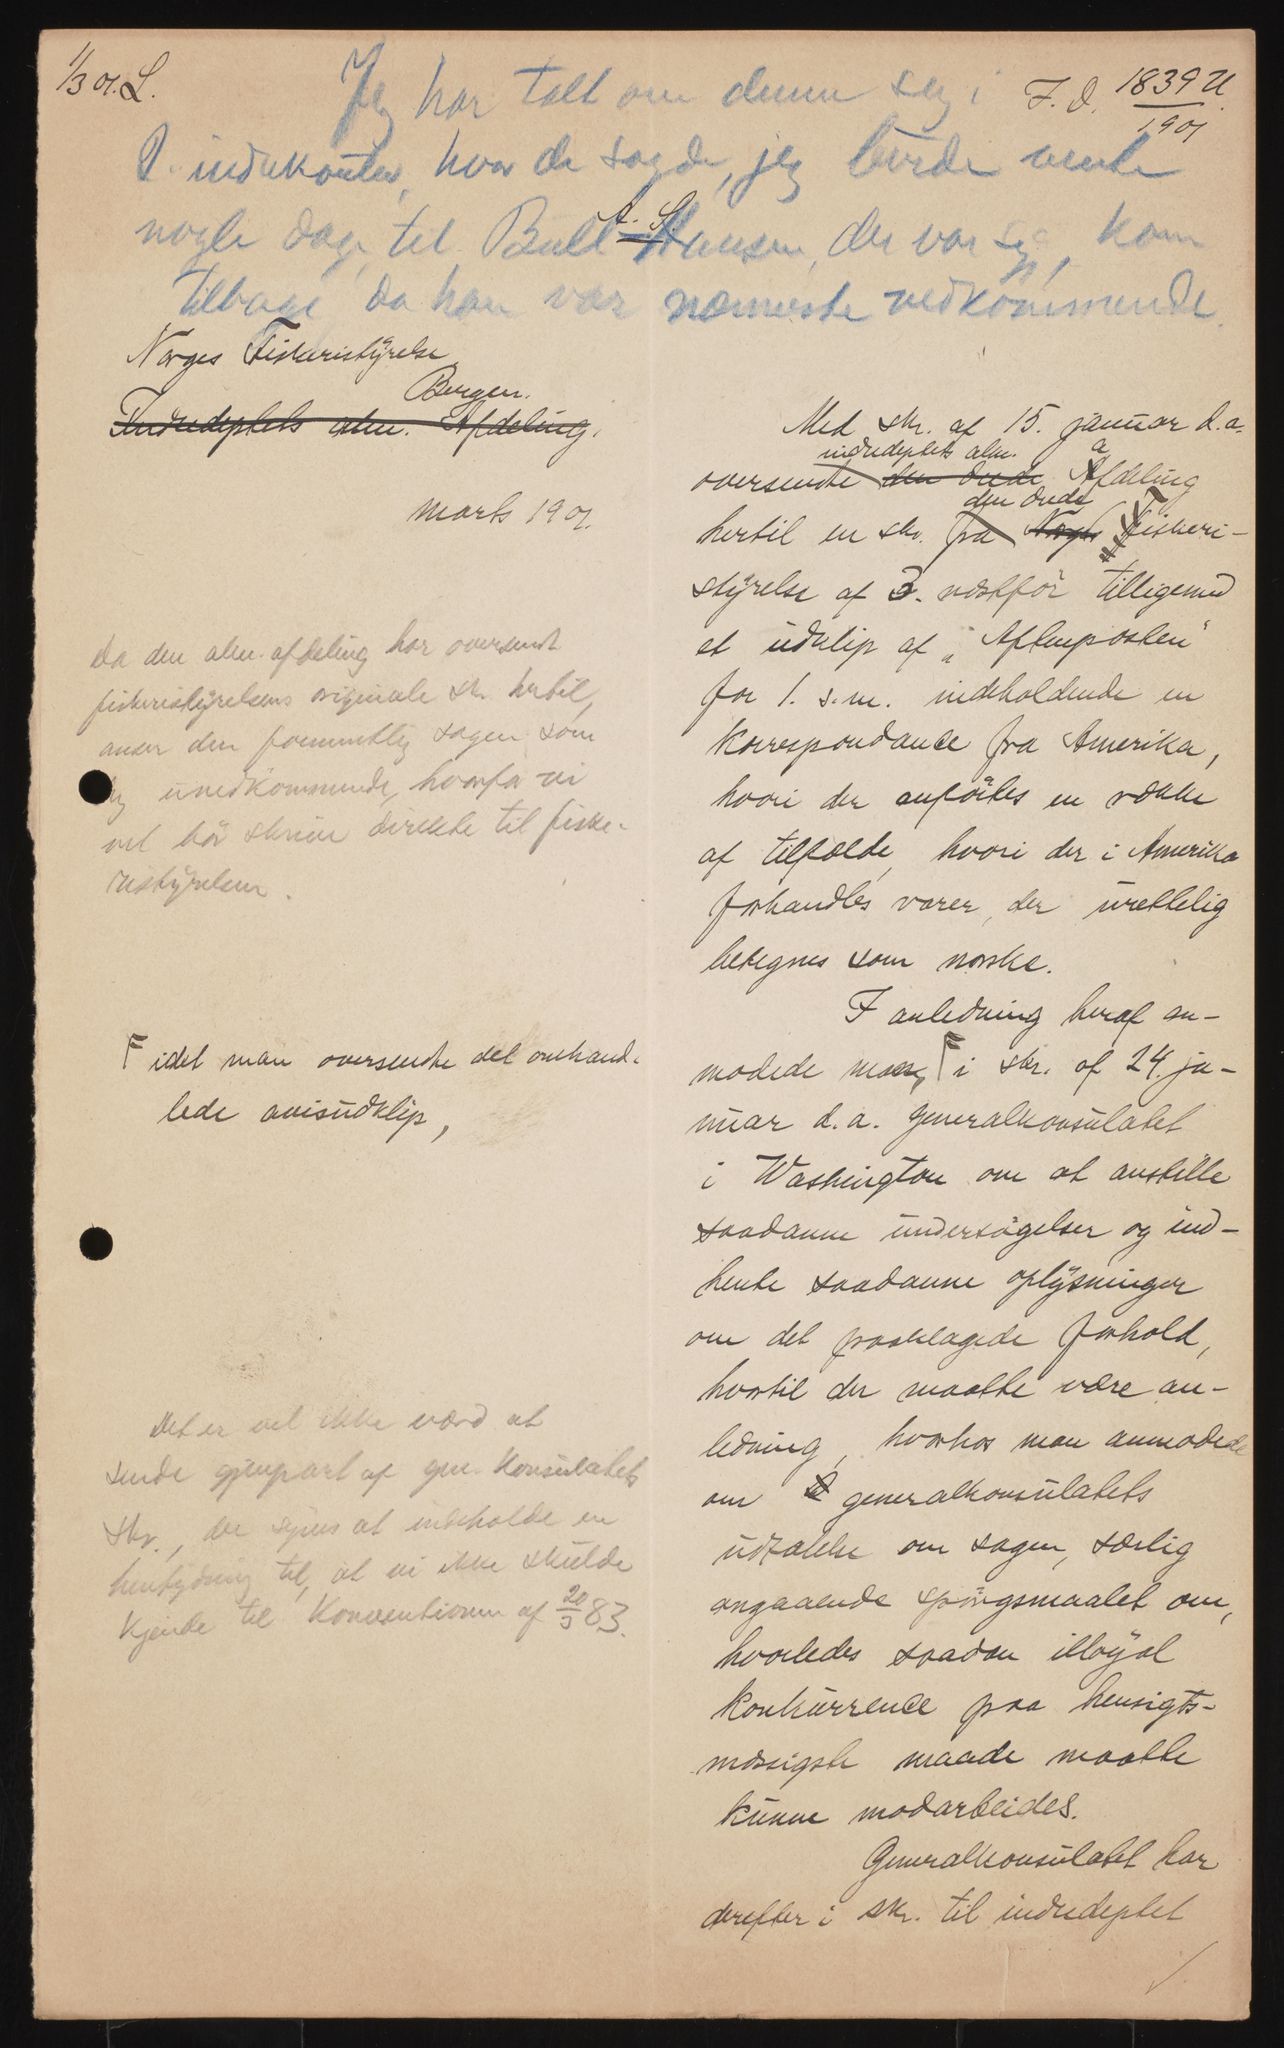 1/3 01. L.
J. D. 1839 U
1901
Jeg har talt om denne sag i
hvor de sagde, jeg burde vente
nogle dage, til Bull Hansen, der var syg, kom
A. S.
tilbage da han var nærmeste vedkommende.
Norges Fiskeristyrelse
Bergen.
Indredeptets alm. Afdeling.
marts 1901.
Da den alm. afdeling har oversendt
fiskeristyrelsens originale skr. hertil,
anser den formentlig sagen som
sig uvedkommende, hvorfor vi
vel bör skrive direkte til fiske-
ristyrelsen.
F idet man oversendte det omhand-
lede avisudklip,
Det er vel ikke værd at
sende gjenpart af gen. konsulatets
skr., der synes at indeholde en
hentydning til, at vi ikke skulde
kjende til Konventionen af 20/3 83.
Med skr. af 15. januar d.a.
indredeptets alm. a
oversendte den Indre Afdeling
den Indre
hertil en skr. fra Norges Fiskeri-
styrelse af 3. næstför tilligemed
et udklip af "Aftenposten"
for 1. s.m. indeholdende en
korrespondance fra Amerika,
hvori der anförtes en række
af tilfælde, hvori der i Amerika
forhandles varer, der urettelig
betegnes som norske.
I anledning heraf an-
modede man, F i skr. af 24. ja-
nuar d.a. generalkonsulatet
i Washington om at anstille
saadanne undersögelser og ind-
hente saadanne oplysninger
om det paaklagede forhold,
hvortil der maatte være an-
ledning, hvorhos man anmodede
om generalkonsulatets
udtalelse om sagen, særlig
angaaende spörgsmaalet om,
hvorledes saadan illoyal
konkurrence paa hensigts-
mæssigste maade maatte
kunne modarbeides.
Generalkonsulatet har
derefter i skr. til indredeptet